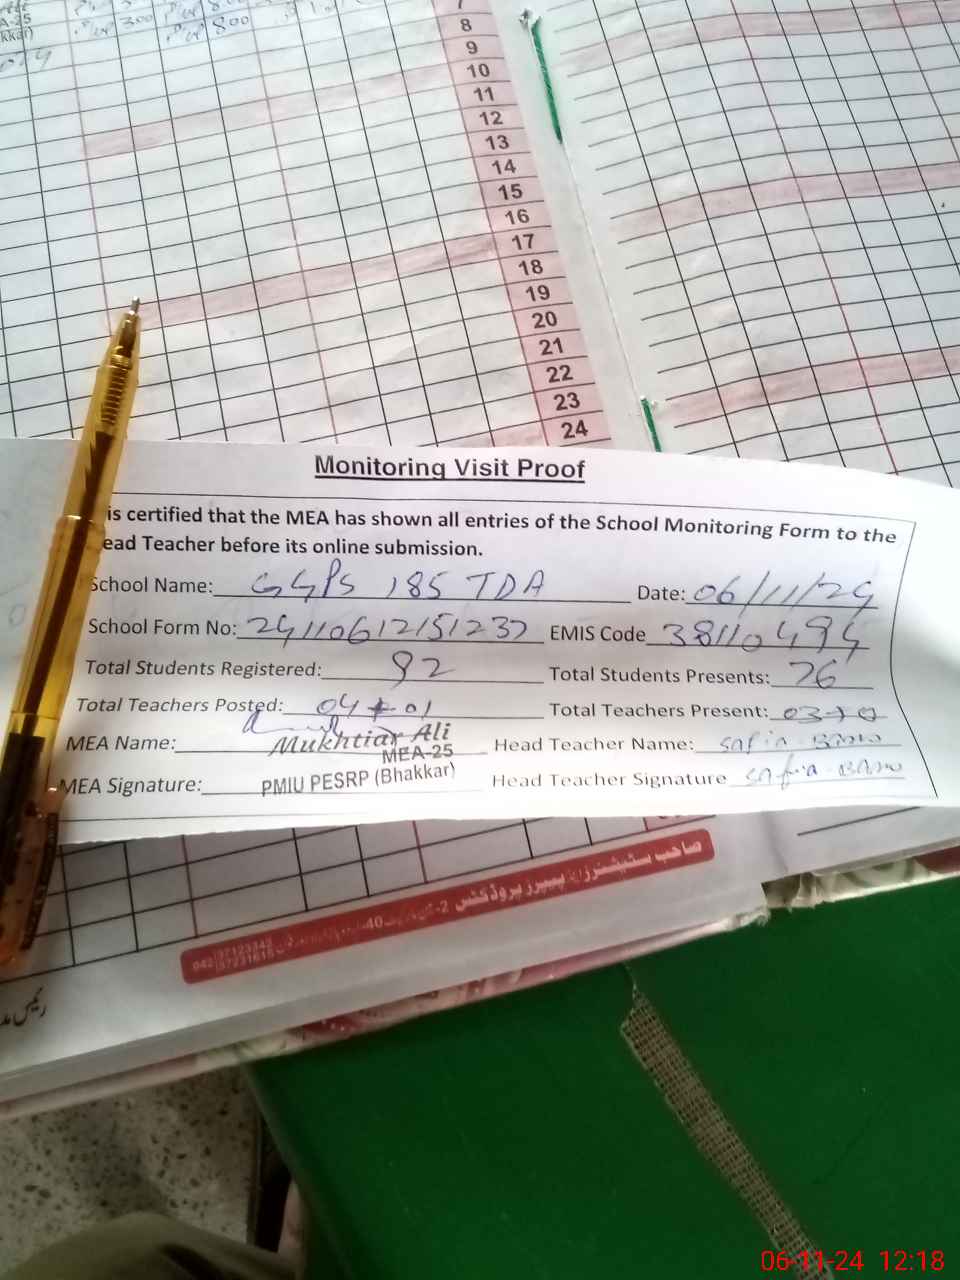 300
800
8
9
10
11
12
13
14
15
16
17
18
19
20
21
22
23
24
Monitoring Visit Proof
is certified that the MEA has shown all entries of the School Monitoring Form to the
ead Teacher before its online submission.
School Name: GGPS 185 TDA Date: 06/11/24
School Form No: 24110612151237 EMIS Code 38110494
Total Students Registered: 92 Total Students Presents: 76
Total Teachers Posted: 04+01 Total Teachers Present: 03+0
MEA Name: Mukhtiar Ali Head Teacher Name: Safia Bano
MEA-25
MEA Signature: PMIU PESRP (Bhakkar) Head Teacher Signature Safia Bano
صاحب سٹیشنرز اینڈ پیپرز پروڈکٹس
042 37123342
37231615
رئیس
06-11-24 12:18